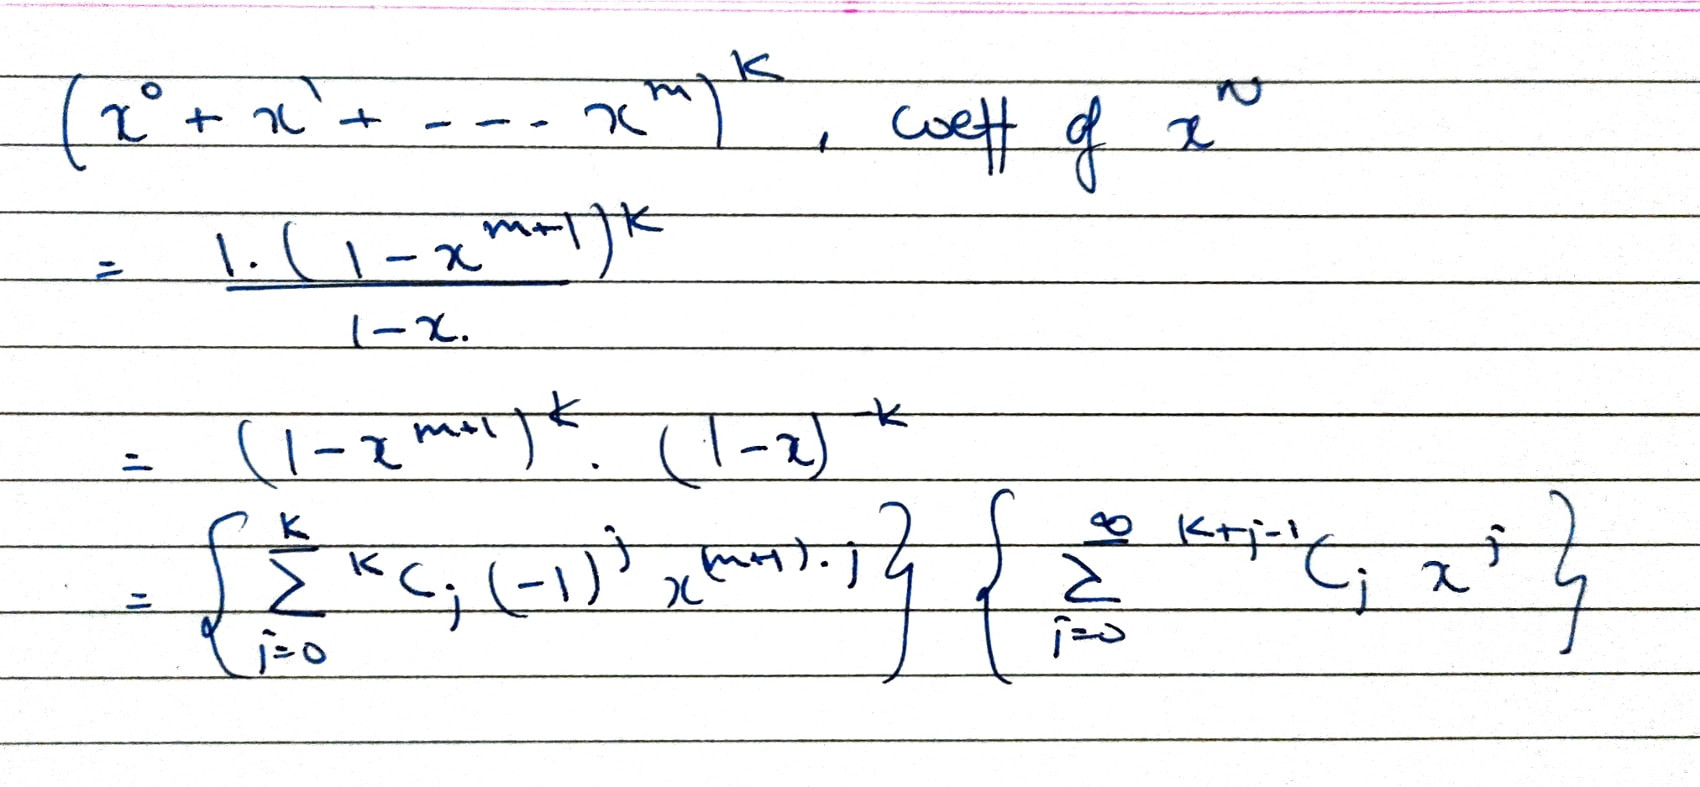 (x⁰ + x¹ + ---- xᵐ)ᴷ, coeff of xᴺ
= 1.(1-x^{m+1})^K / 1-x.
= (1-x^{m+1})^k . (1-x)^{-k}
= {∑_{j=0}^{K} ^K C_j (-1)^j x^{(m+1).j}} {∑_{j=0}^{∞} ^{K+j-1} C_j x^j}